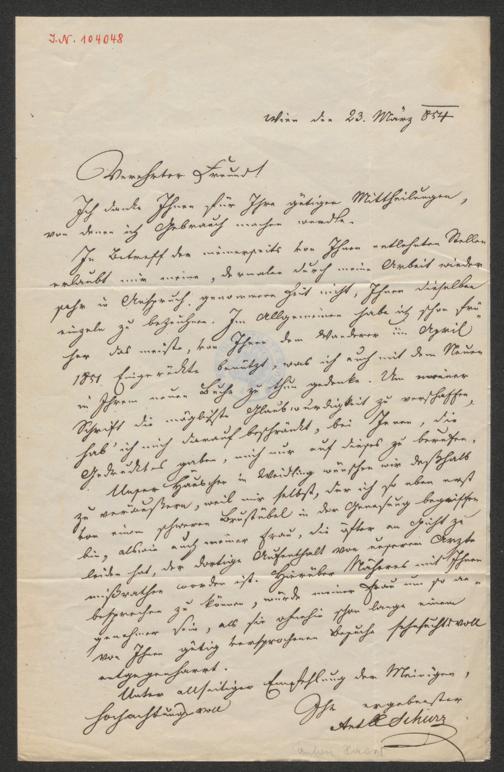 I.N. 104048
Wien den 23. März 854
Verehrter Freund!
Ich danke Ihnen für Ihre gütigen Mittheilungen,
von denen ich Gebrauch machen werde.
In Betreff der meinerseits von Ihnen entlehnten Stellen
erlaubt mir meine, dermalen durch meine Arbeit wieder
sehr in Anspruch genommene Zeit nicht, Ihnen dieselben
einzeln zu bezeichnen. Im Allgemeinen habe ich schon frü
her das meiste, von Ihnen dem Wanderer im April
1851 Eingerückte benützt, was ich auch mit dem Neuen
in Ihrem neuen Buche zu thun gedenke. Um meiner
Schrift die möglichste Glaubwürdigkeit zu verschaffen,
hab' ich mich darauf beschränkt, bei Jenen, die
Gedrucktes gaben, mich nur auf dieses zu berufen.
Unser Häuschen in Weidling wünschen wir deßhalb
zu veräußern, weil mir selbst, der ich so eben erst
von einem schweren Brustübel in der Genesung begriffen
bin, alswie auch meiner Frau, die öfter an Gicht zu
leiden hat, der dortige Aufenthalt von unserem Arzte
mißrathen worden ist. Hierüber Näheres mit Ihnen
besprechen zu können, würde meiner Frau um so an-
genehmer sein, als sie ohnehin schon lange einem
von Ihnen gütig versprochenen Besuche sehnsuchtsvoll
entgegenharrt.
Unter allseitiger Empfehlung der Meinigen,
hochachtungsvoll
Ihr ergebenster
Ant. X Schurz